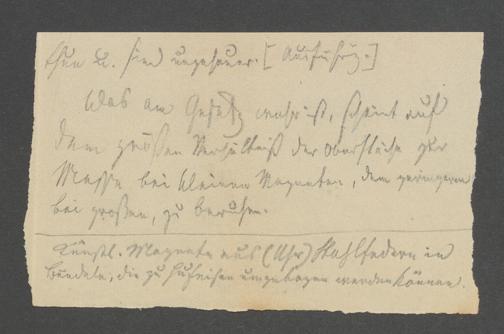 thun u. sind ungeheuer. [Ausführg.]
Was am Gesetz wahr ist, scheint auf
dem größen Verhältniß der Oberfläche zur
Masse bei kleinen Magneten, dem geringeren
bei großen, zu beruhen.
Künstl. Magnete aus (Uhr) Stahlfedern in
Bündeln, die zu Hufeisen umgebogen werden können.